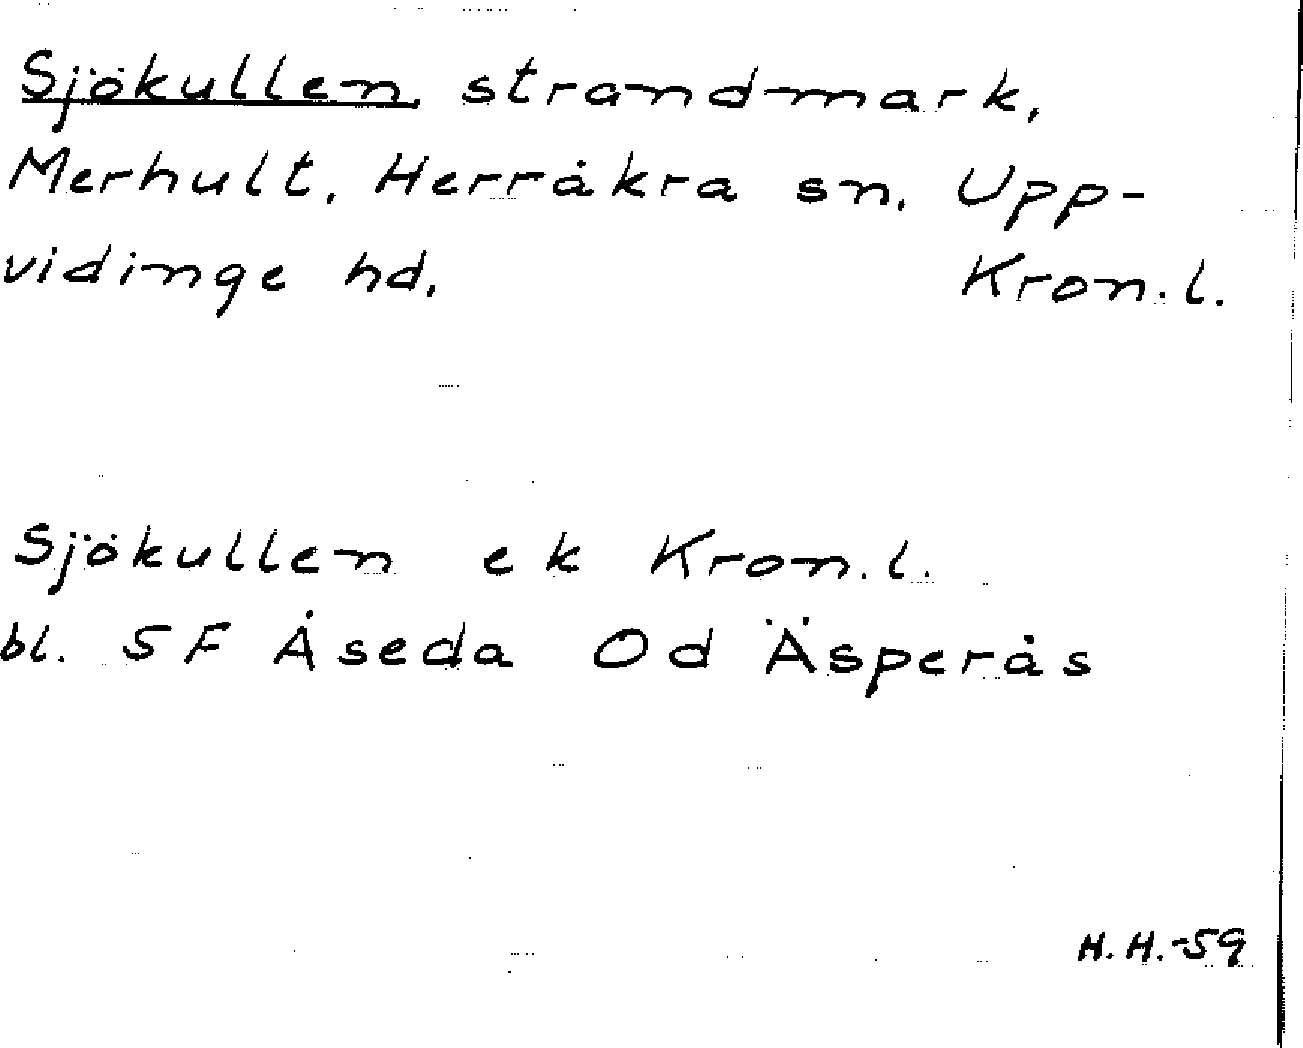 Sjökullen, strandmark,
Merhult, Herråkra sn, Upp-
vidinge hd, Kron.l.
Sjökullen ek Kron.l.
bl. 5F Åseda Od Äsperås
H.H.-59